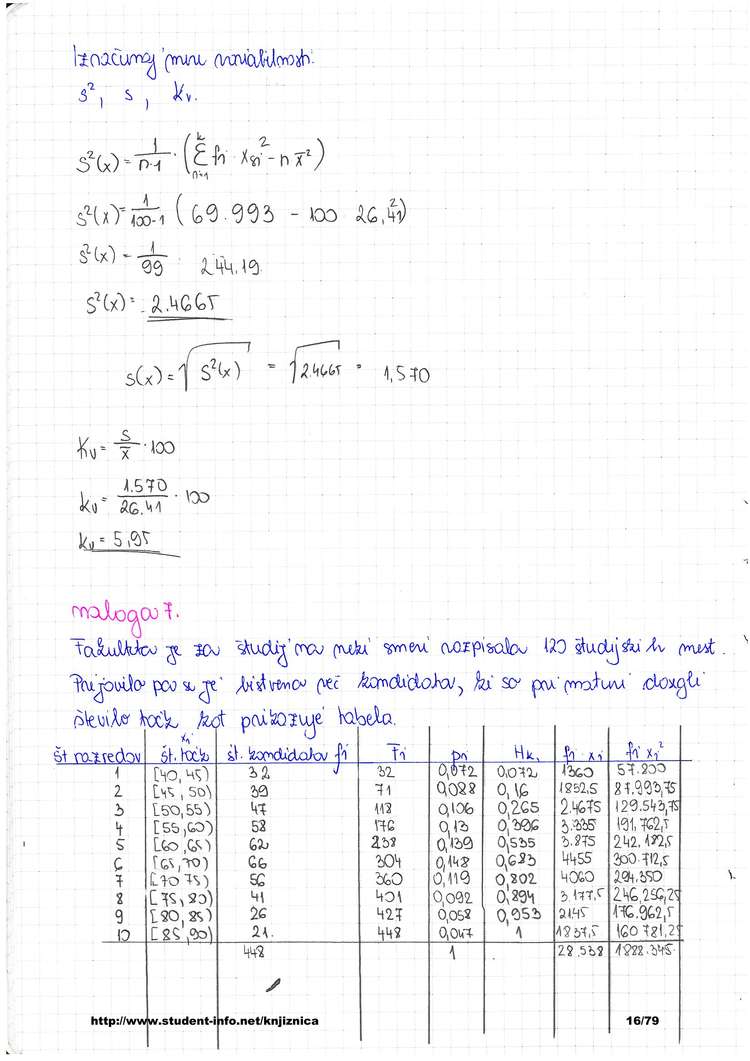 Izračunaj mere variabilnosti:
s², s, Kv.
s²(x) = 1/n-1 · (Σ fi · xsi² - n x̄²)
s²(x) = 1/100-1 (69.993 - 100 26,41²)
s²(x) = 1/99 244,19
s²(x) = 2.4665
s(x) = √s²(x) = √2.4665 = 1,570
Kv = s/x̄ · 100
Kv = 1.570/26.41 · 100
Kv = 5,95
naloga 7.
Fakulteta je za študij na neki smeri razpisala 120 študijskih mest.
Prijavilo pa se je bistveno več kandidatov, ki so pri maturi dosegli
število točk kot prikazuje tabela.
št razredov št. točk xi št. kandidatov fi Fi pi Hk, fi xi fi xi²
1 [40, 45) 32 32 0,072 0,072 1360 57.800
2 [45, 50) 39 71 0,088 0,16 1852,5 87.993,75
3 [50,55) 47 118 0,106 0,265 2.4675 129.543,75
4 [55,60) 58 176 0,13 0,396 3.335 191,762,5
5 [60,65) 62 238 0,139 0,535 3.875 242,182,5
6 [65,70) 66 304 0,148 0,683 4455 300.712,5
7 [70 75) 56 360 0,119 0,802 4060 294.350
8 [75,80) 41 401 0,092 0,894 3.177,5 246,256,25
9 [80,85) 26 427 0,058 0,953 2145 176.962,5
10 [85,90) 21. 448 0,047 1 1837,5 160 781,25
448 1 28.538 1888.345.
http://www.student-info.net/knjiznica 16/79